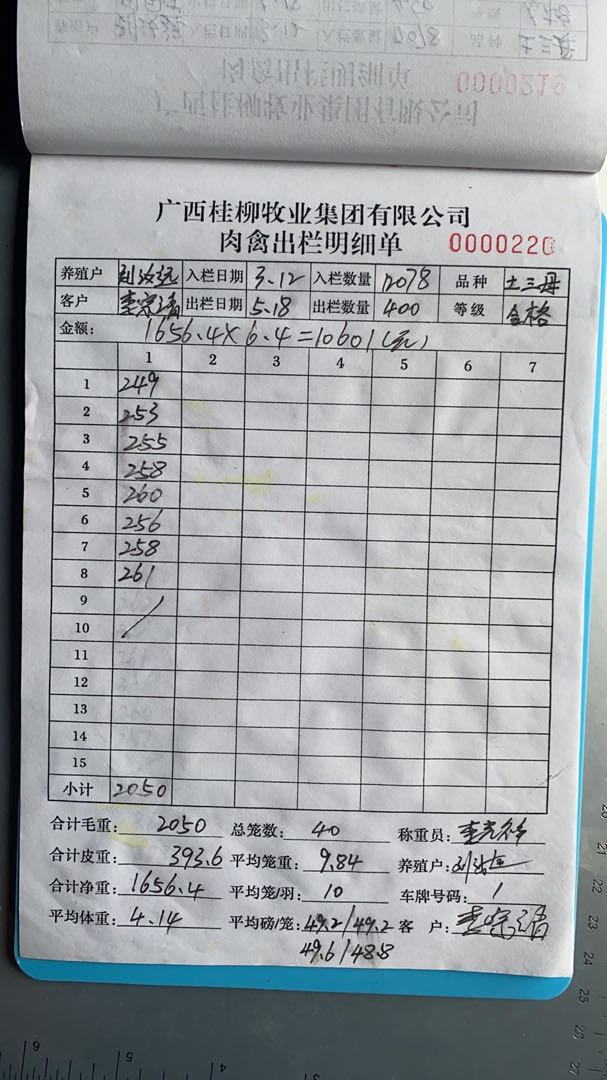 0000219
广西桂柳牧业集团有限公司
肉禽出栏明细单 0000220
养殖户 入栏日期 3.12 入栏数量 12078 品种 土三母
客户 李宗清 出栏日期 5.18 出栏数量 400 等级 合格
金额: 1656.4×6.4=10601(元)
1 2 3 4 5 6 7
1 249
2 253
3 255
4 258
5 260
6 256
7 258
8 261
9
10
11
12
13
14
15
小计 2050
合计毛重: 2050 总笼数: 40 称重员:
合计皮重: 393.6 平均笼重: 9.84 养殖户:
合计净重: 1656.4 平均笼/羽: 10 车牌号码: /
平均体重: 4.14 平均磅/笼: 49.2/49.2 客 户: 李宗清
49.6/48.8